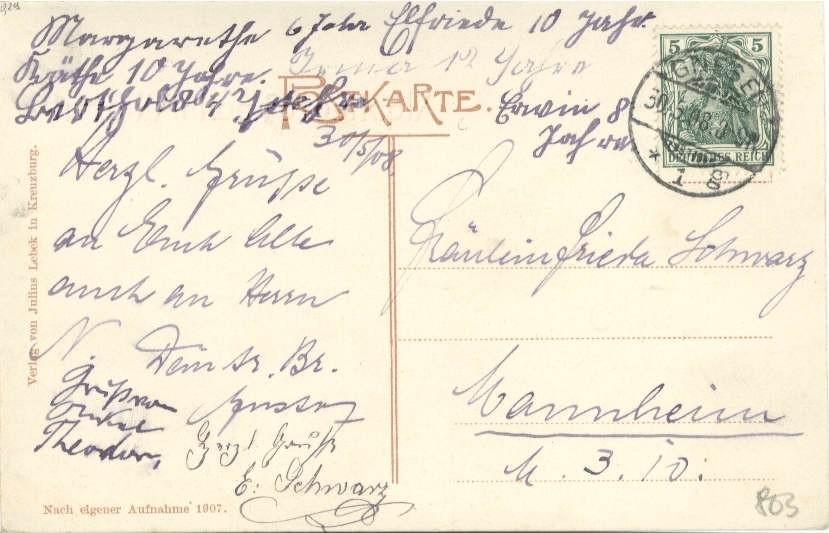 Margarethe 6 Jahr Elfriede 10 Jahr.
Käthe 10 Jahre. Irma 12 Jahre
Berthold 4 Jahre Erwin 8
Jahre
POSTKARTE.
5 5
DEUTSCHES REICH
GNESEN
30.5.08.
* 1 g
30/5/08
Herzl. Grüsse
an Euch Alle
auch an Herrn
N. Dein tr. Br.
Gustav
Gruß von
Onkel
Theodor,
Herzl. Grüsse
E. Schwarz
Fräulein Frieda Schwarz
Mannheim
M. 3. 10.
Verlag von Julius Lebek in Kreuzburg.
Nach eigener Aufnahme 1907.
803